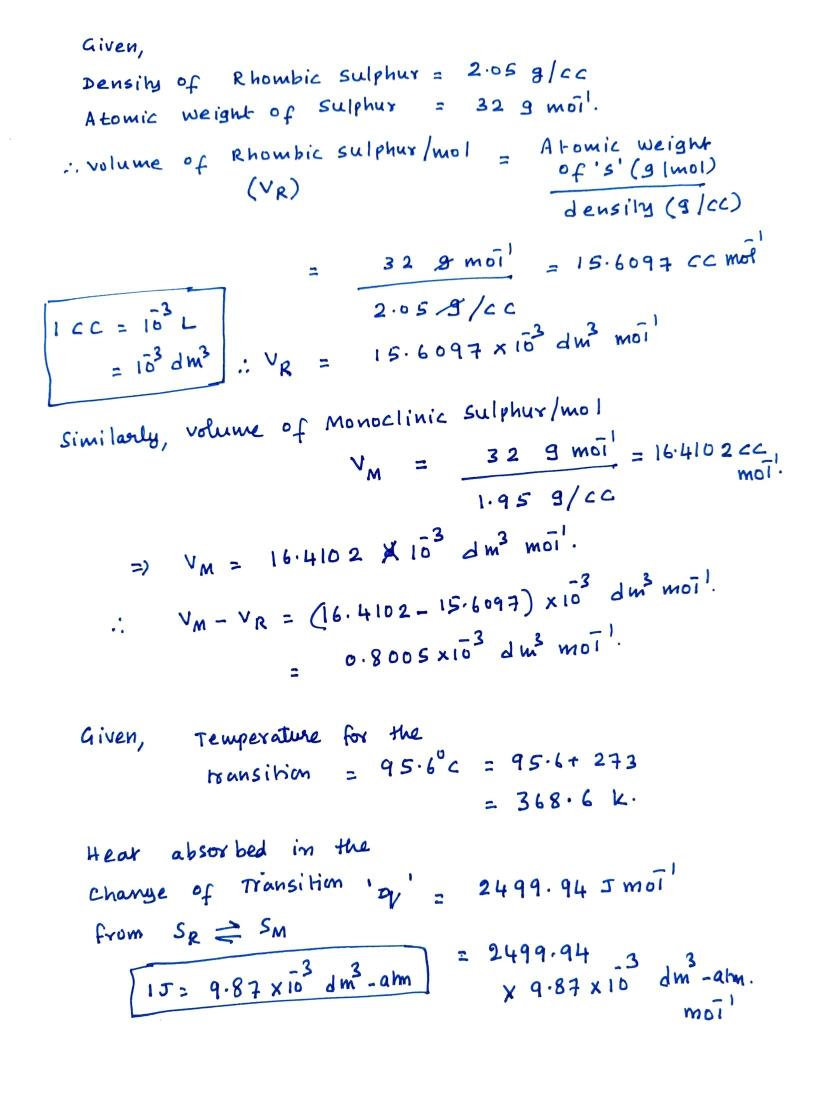 Given,
Density of Rhombic sulphur = 2.05 g/cc
Atomic weight of sulphur = 32 g mol⁻¹.
∴ volume of Rhombic sulphur/mol = Atomic weight of 's' (g/mol) / density (g/cc)
(V_R)
= 32 g mol⁻¹ / 2.05 g/cc = 15.6097 cc mol⁻¹
1 cc = 10⁻³ L
= 10⁻³ dm³
∴ V_R = 15.6097 × 10⁻³ dm³ mol⁻¹
Similarly, volume of Monoclinic sulphur/mol
V_M = 32 g mol⁻¹ / 1.95 g/cc = 16.4102 cc mol⁻¹.
⇒ V_M = 16.4102 × 10⁻³ dm³ mol⁻¹.
∴ V_M - V_R = (16.4102 - 15.6097) × 10⁻³ dm³ mol⁻¹.
= 0.8005 × 10⁻³ dm³ mol⁻¹.
Given, Temperature for the
transition = 95.6°C = 95.6 + 273
= 368.6 K.
Heat absorbed in the
change of Transition 'q' = 2499.94 J mol⁻¹
from S_R ⇌ S_M
= 2499.94
× 9.87 × 10⁻³ dm³-atm. mol⁻¹
1J = 9.87 × 10⁻³ dm³-atm